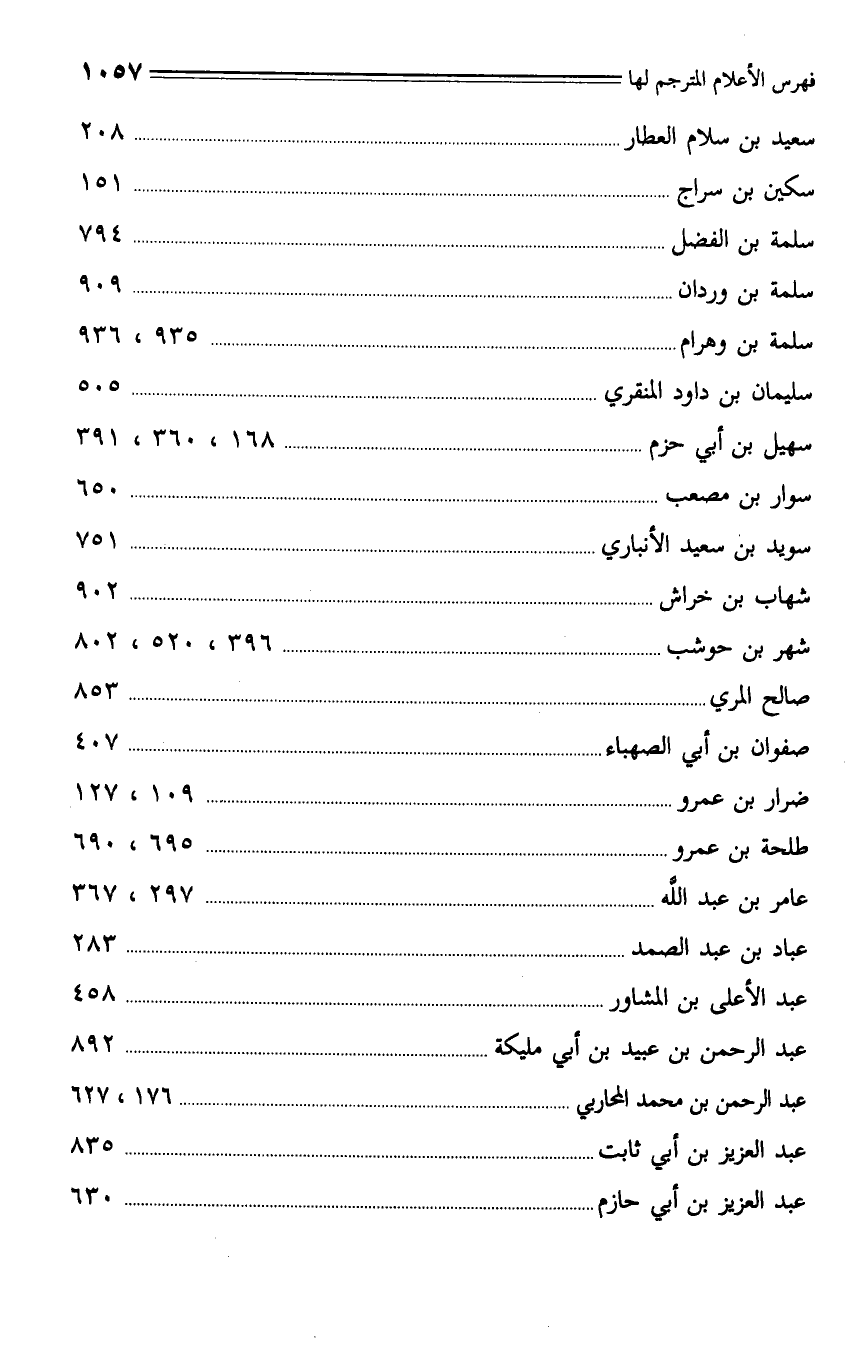 فهرس الأعلام المترجم لها ١٠٥٧
سعيد بن سلام العطار ٢٠٨
سكين بن سراج ١٥١
سلمة بن الفضل ٧٩٤
سلمة بن وردان ٩٠٩
سلمة بن وهرام ٩٣٥ ، ٩٣٦
سليمان بن داود المنقري ٥٠٥
سهيل بن أبي حزم ١٦٨ ، ٣٦٠ ، ٣٩١
سوار بن مصعب ٦٥٠
سويد بن سعيد الأنباري ٧٥١
شهاب بن خراش ٩٠٢
شهر بن حوشب ٣٩٦ ، ٥٢٠ ، ٨٠٢
صالح المري ٨٥٣
صفوان بن أبي الصهباء ٤٠٧
ضرار بن عمرو ١٠٩ ، ١٢٧
طلحة بن عمرو ٦٩٥ ، ٦٩٠
عامر بن عبد اللَّه ٢٩٧ ، ٣٦٧
عباد بن عبد الصمد ٢٨٣
عبد الأعلى بن المشاور ٤٥٨
عبد الرحمن بن عبيد بن أبي مليكة ٨٩٢
عبد الرحمن بن محمد المحاربي ١٧٦ ، ٦٢٧
عبد العزيز بن أبي ثابت ٨٣٥
عبد العزيز بن أبي حازم ٦٣٠